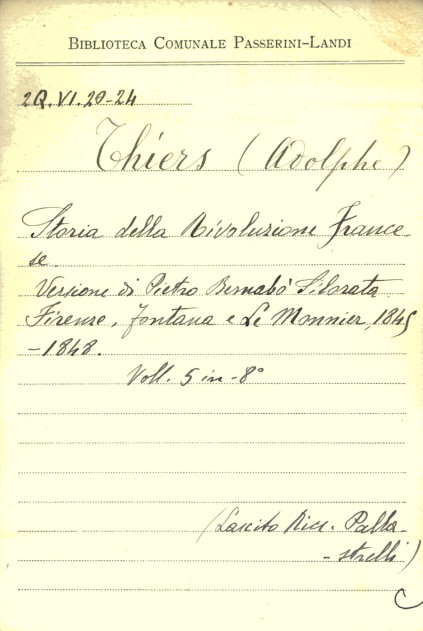 BIBLIOTECA COMUNALE PASSERINI-LANDI
2Q.VI.20-24
Thiers (Adolphe)
Storia della Rivoluzione France
se.
Versione di Pietro Bernabò Silorata
Firenze, Fontana e Le Monnier, 1845
-1848.
Voll. 5 in-8°
(Lascito Ricc. Palla-
-strelli)